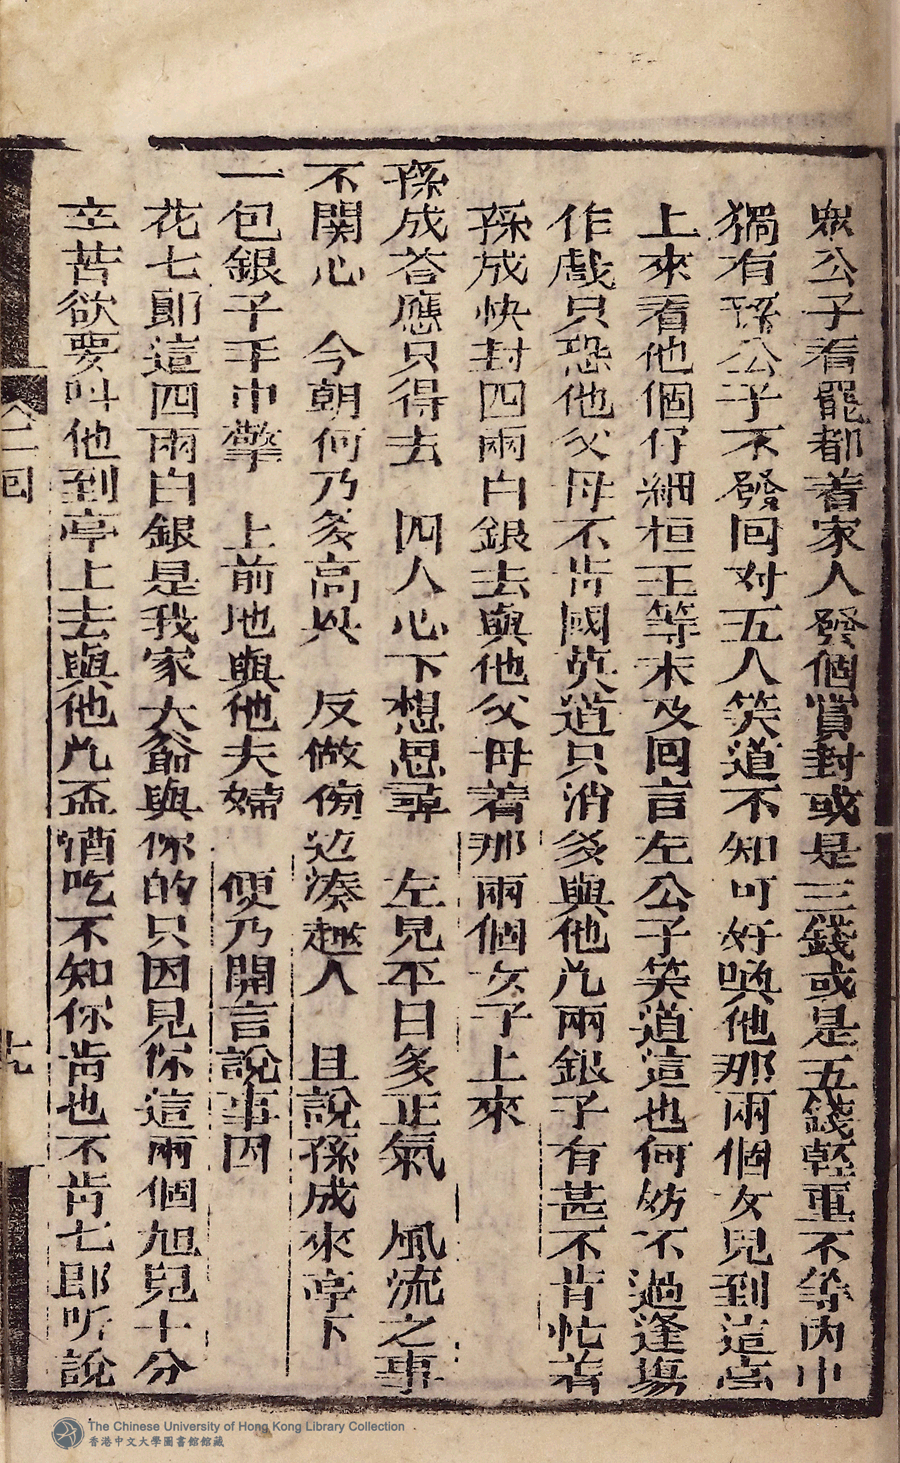 眾公子看罷都着家人發個賞封或是三錢或是五錢輕重不等內中
獨有孫公子不發回对五人笑道不知可好喚他那兩個女兒到這亭
上來看他個仔細桓王等未及回言左公子笑道這也何妨不過逢塲
作戲只恐他父母不肯國英道只消多與他几兩銀子有甚不肯忙着
孫成快封四兩白銀去與他父母着那兩個女子上來
孫成荅應只得去　四人心下想思尋　左見平日多正氣　風流之事
不関心　今朝何乃多高兴　反做傍边湊趣人　且說孫成來亭下
一包銀子手巾擎　上前地與他夫婦　便乃開言說事因
花七郎這四兩白銀是我家大爺與你的只因見你這兩個旭兒十分
辛苦欲要叫他到亭上去與他几盃酒吃不知你肯也不肯七郎听說
二回
十九
The Chinese University of Hong Kong Library Collection
香港中文大學圖書館館藏